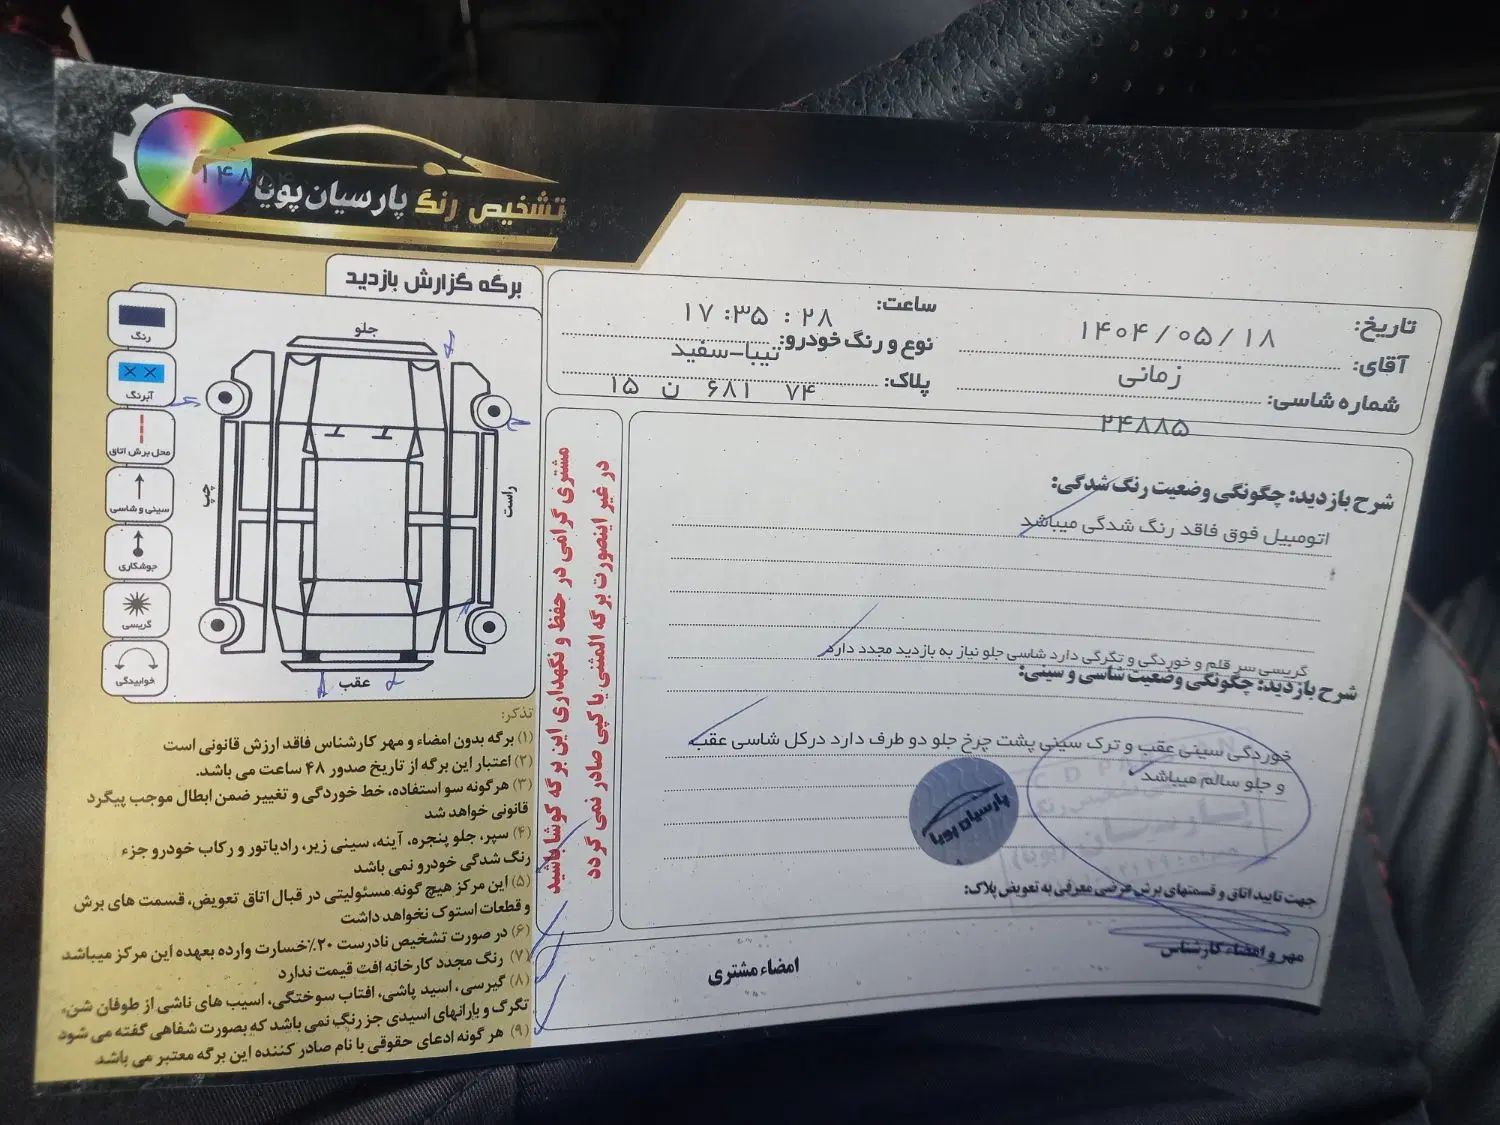 تشخیص رنگ پارسیان پویا
برگه گزارش بازدید
تاریخ: ۱۴۰۴/۰۵/۱۸
ساعت: ۱۷:۳۵:۲۸
آقای: زمانی
نوع و رنگ خودرو: تیبا-سفید
شماره شاسی: ۲۴۸۸۵
پلاک: ۱۵ ن ۶۸۱ ۷۴
رنگ
آبرنگ
محل برش اتاق
سینی و شاسی
جوشکاری
گریسی
خوابیدگی
جلو
چپ
راست
عقب
مشتری گرامی در حفظ و نگهداری این برگه کوشا باشید
در غیر اینصورت برگه المثنی یا کپی صادر نمی گردد
شرح بازدید: چگونگی وضعیت رنگ شدگی:
اتومبیل فوق فاقد رنگ شدگی میباشد
گریسی سر قلم و خوردگی و تگرگی دارد شاسی جلو نیاز به بازدید مجدد دارد
شرح بازدید: چگونگی وضعیت شاسی و سینی:
خوردگی سینی عقب و ترک سینی پشت چرخ جلو دو طرف دارد درکل شاسی عقب
و جلو سالم میباشد
پارسیان پویا
جهت تایید اتاق و قسمتهای برش عرضی معرفی به تعویض پلاک:
مهر و امضاء کارشناس
امضاء مشتری
تذکر:
۱) برگه بدون امضاء و مهر کارشناس فاقد ارزش قانونی است
۲) اعتبار این برگه از تاریخ صدور ۴۸ ساعت می باشد.
۳) هرگونه سو استفاده، خط خوردگی و تغییر ضمن ابطال موجب پیگرد
قانونی خواهد شد
۴) سپر، جلو پنجره، آینه، سینی زیر، رادیاتور و رکاب خودرو جزء
رنگ شدگی خودرو نمی باشد
۵) این مرکز هیچ گونه مسئولیتی در قبال اتاق تعویض، قسمت های برش
و قطعات استوک نخواهد داشت
۶) در صورت تشخیص نادرست ۲۰٪ خسارت وارده بعهده این مرکز میباشد
۷) رنگ مجدد کارخانه افت قیمت ندارد
۸) گیرسی، اسید پاشی، افتاب سوختگی، اسیب های ناشی از طوفان شن،
تگرگ و بارانهای اسیدی جز رنگ نمی باشد که بصورت شفاهی گفته می شود
۹) هر گونه ادعای حقوقی با نام صادر کننده این برگه معتبر می باشد